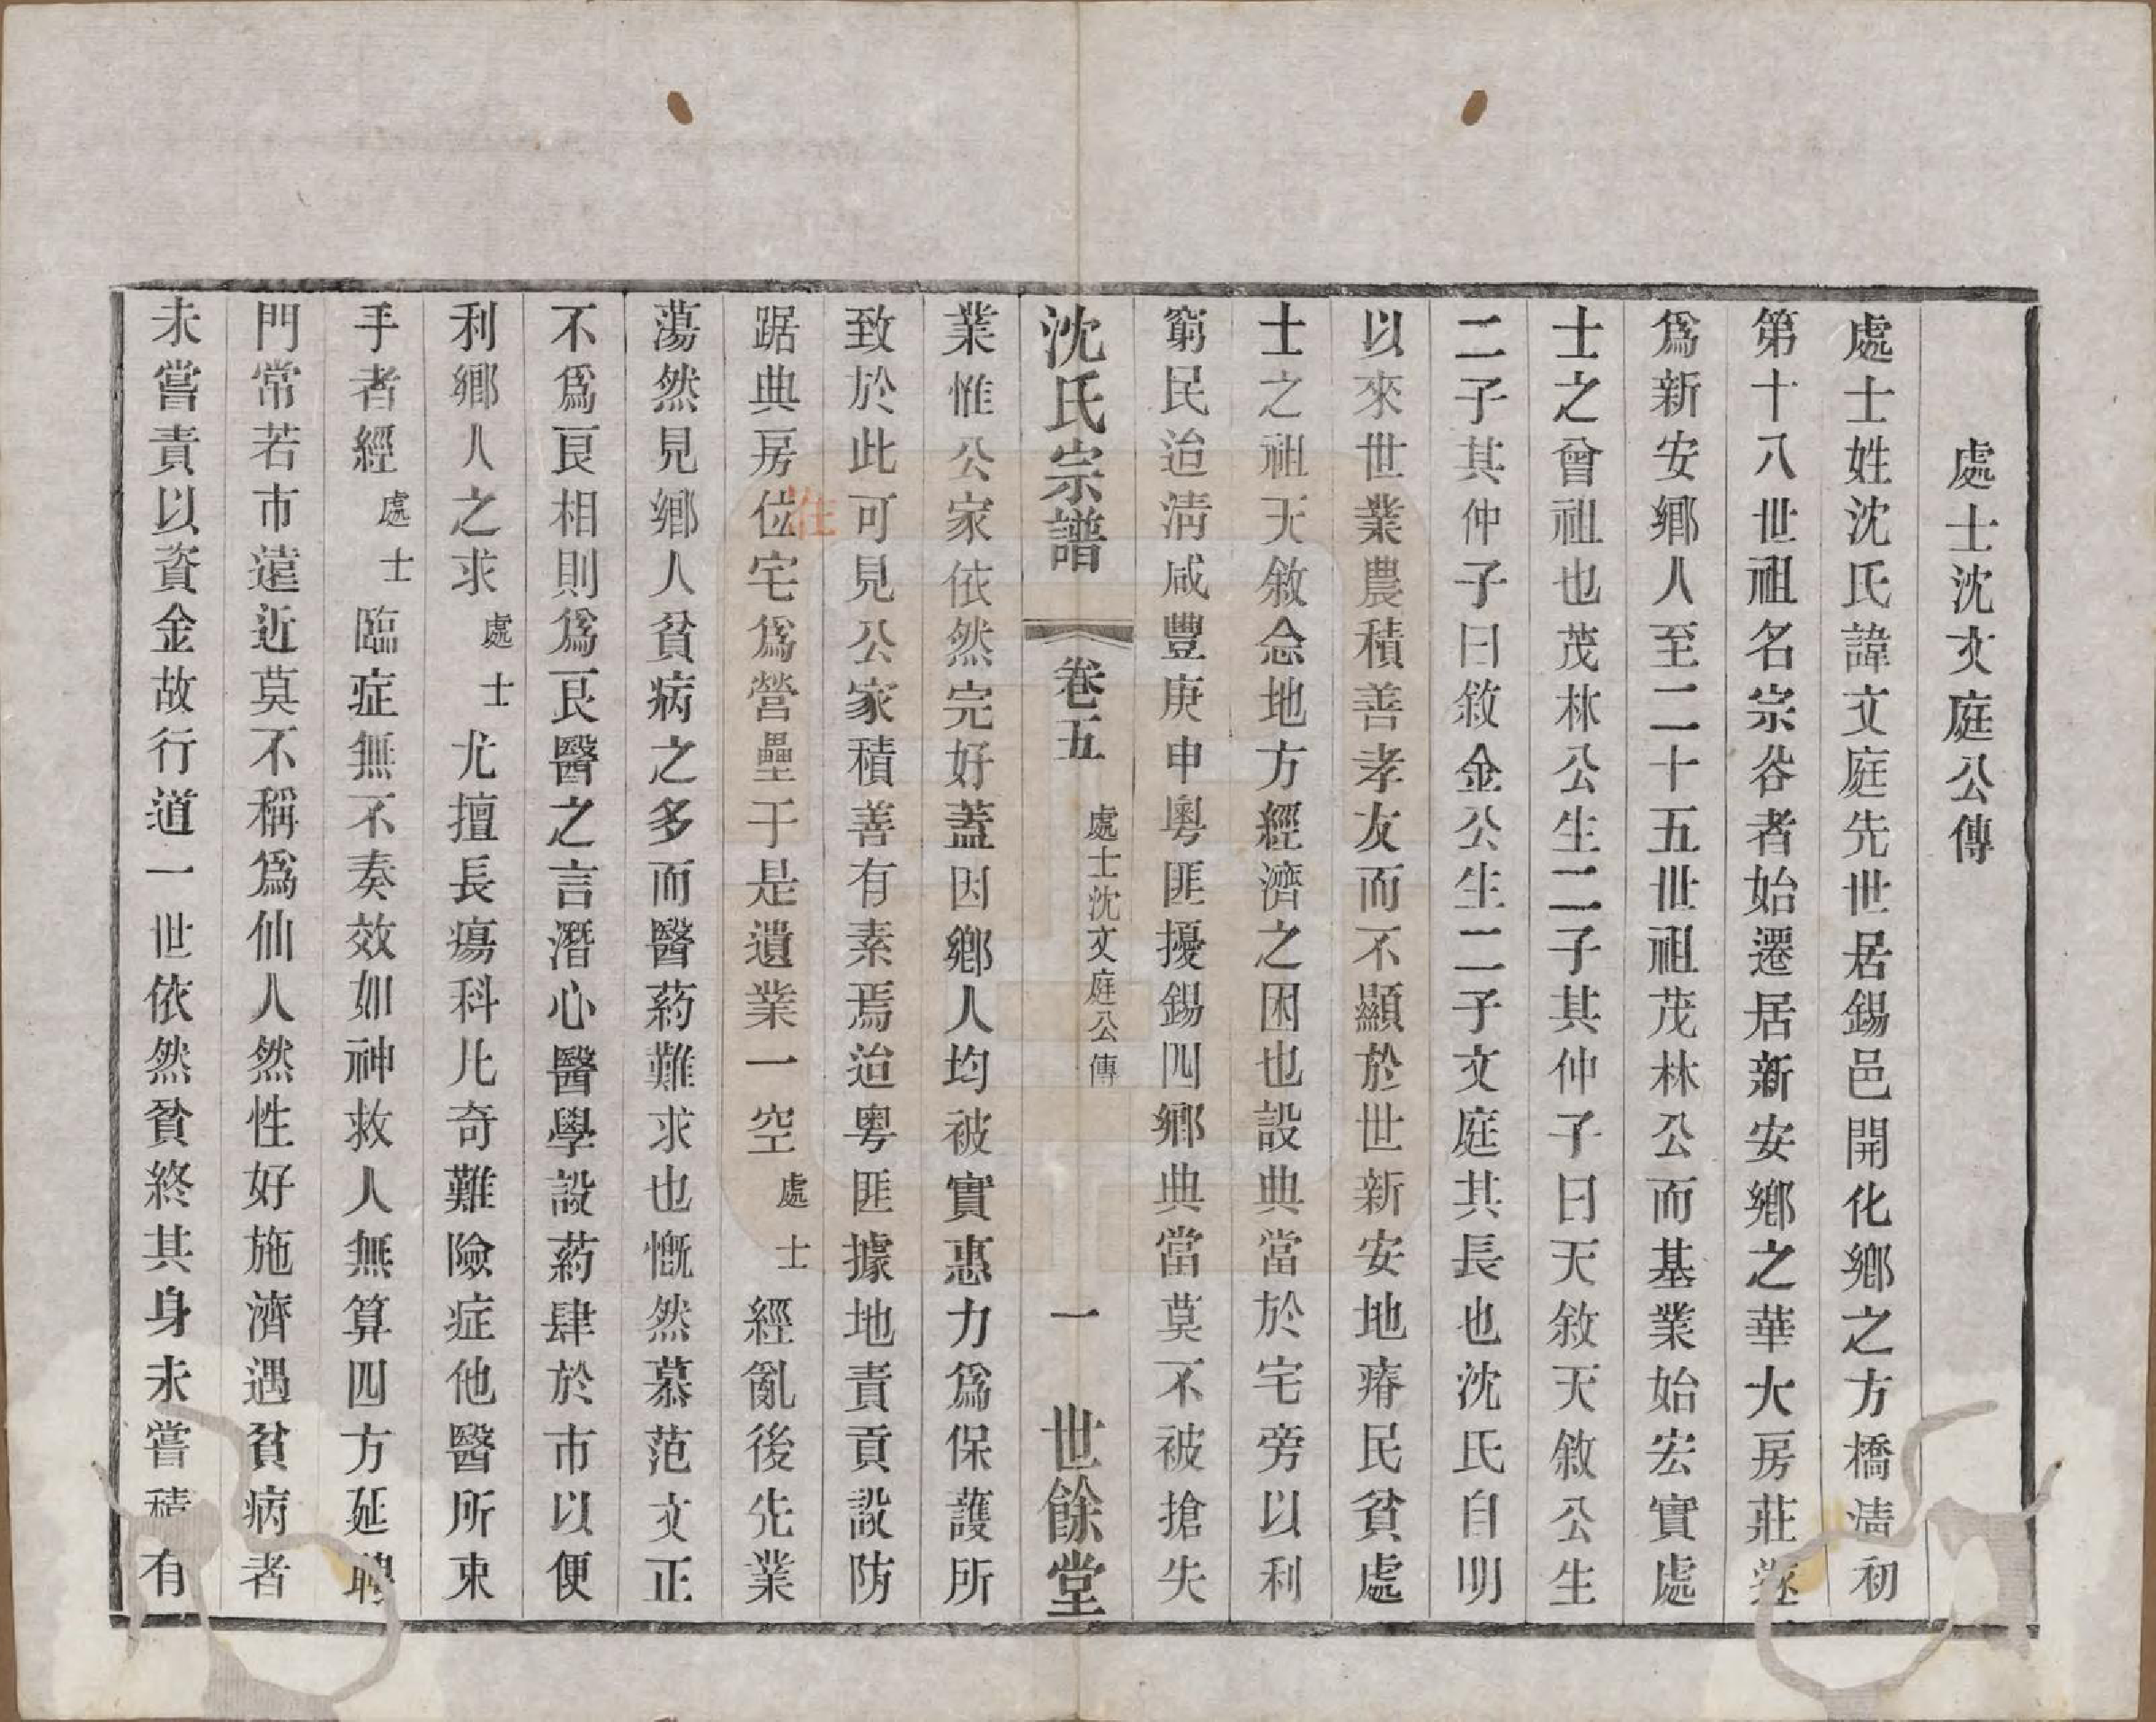 處士沈文庭公傳
處士姓沈氏諱文庭先世居錫邑開化鄉之方橋清初
第十八世祖名宗谷者始遷居新安鄉之華大房莊遂
爲新安鄉人至二十五世祖茂林公而基業始宏實處
士之曾祖也茂林公生二子其仲子曰天敘天敘公生
二子其仲子曰敘金公生二子文庭其長也沈氏自明
以來世業農積善孝友而不顯於世新安地瘠民貧處
士之祖天敘念地方經濟之困也設典當於宅旁以利
窮民迨清咸豐庚申粵匪擾錫四鄉典當莫不被搶失
沈氏宗譜 卷五 處士沈文庭公傳 一 世餘堂
業惟公家依然完好蓋因鄉人均被實惠力爲保護所
致於此可見公家積善有素焉迨粵匪據地責貢設防
踞典房位宅爲營壘于是遺業一空處士經亂後先業
住
蕩然見鄉人貧病之多而醫药難求也慨然慕范文正
不爲良相則爲良醫之言潛心醫學設药肆於市以便
利鄉人之求處士尤擅長瘍科凡奇難險症他醫所束
手者經處士臨症無不奏效如神救人無算四方延聘
門常若市遠近莫不稱爲仙人然性好施濟遇貧病者
未嘗責以資金故行道一世依然貧終其身未嘗積有